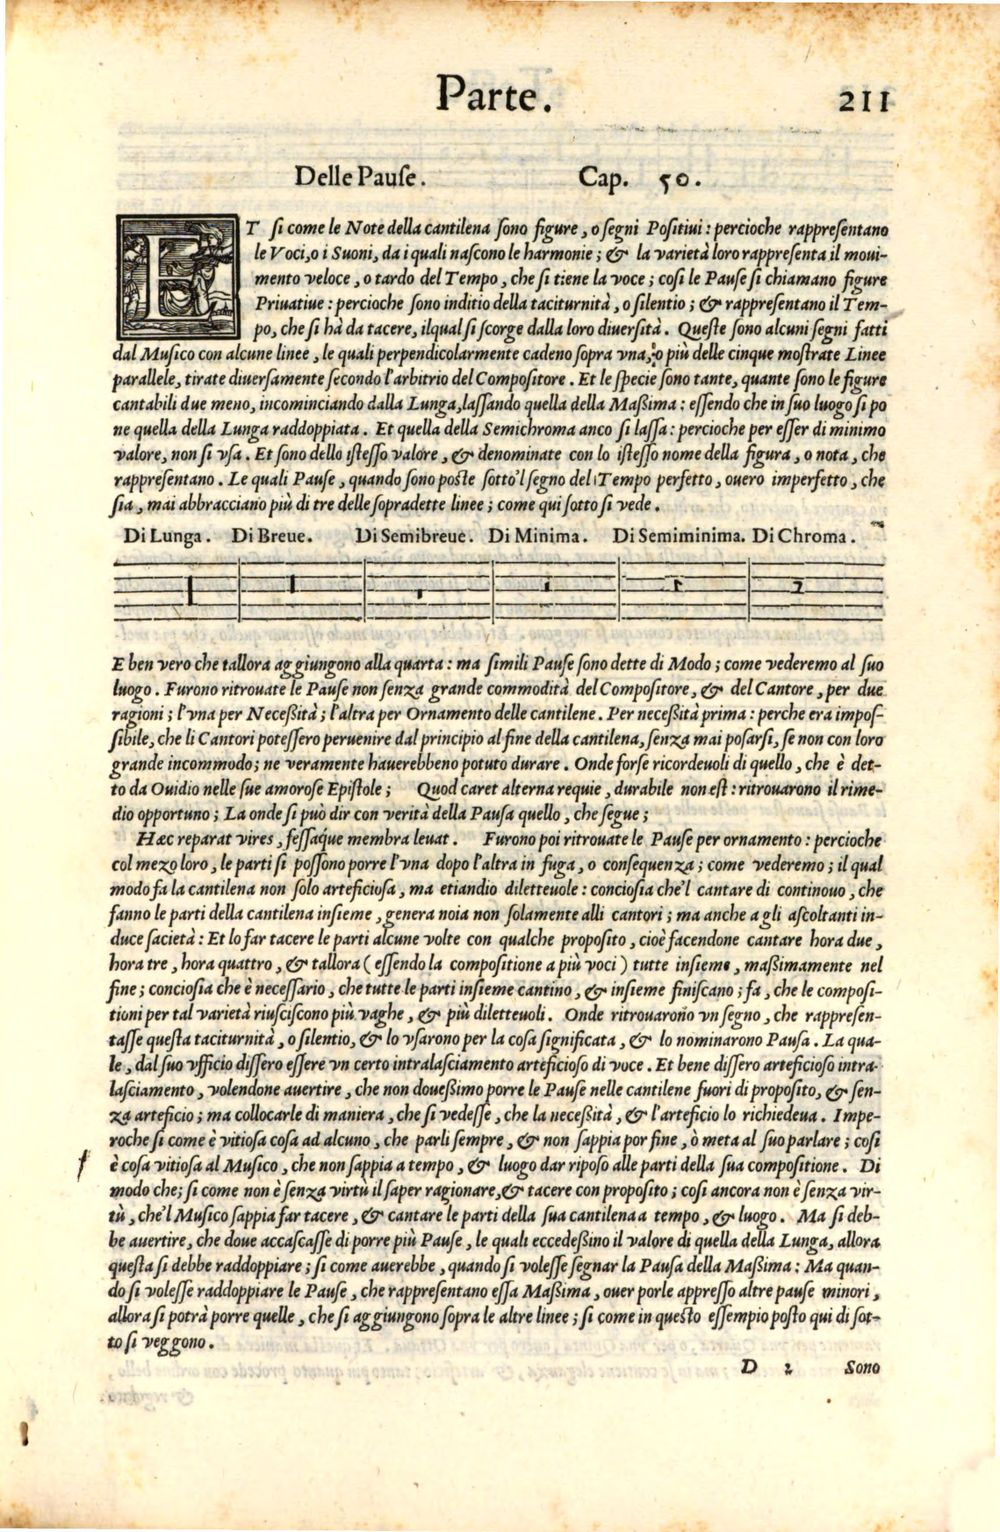 Parte. 211
Delle Pauſe. Cap. 50.
ET ſi come le Note della cantilena ſono figure, o ſegni Poſitiui: percioche rappreſentano
le Voci, o i Suoni, da i quali naſcono le harmonie; & la varietà loro rappreſenta il moui-
mento veloce, o tardo del Tempo, che ſi tiene la voce; coſi le Pauſe ſi chiamano figure
Priuatiue: percioche ſono inditio della taciturnità, o ſilentio; & rappreſentano il Tem-
po, che ſi hà da tacere, ilqual ſi ſcorge dalla loro diuerſità. Queſte ſono alcuni ſegni fatti
dal Muſico con alcune linee, le quali perpendicolarmente cadeno ſopra vna, o più delle cinque moſtrate Linee
parallele, tirate diuerſamente ſecondo l'arbitrio del Compoſitore. Et le ſpecie ſono tante, quante ſono le figure
cantabili due meno, incominciando dalla Lunga, laſſando quella della Maßima: eſſendo che in ſuo luogo ſi po
ne quella della Lunga raddoppiata. Et quella della Semichroma anco ſi laſſa: percioche per eſſer di minimo
valore, non ſi vſa. Et ſono dello iſteſſo valore, & denominate con lo iſteſſo nome della figura, o nota, che
rappreſentano. Le quali Pauſe, quando ſono poſte ſotto'l ſegno del Tempo perfetto, ouero imperfetto, che
ſia, mai abbracciano più di tre delle ſopradette linee; come qui ſotto ſi vede.
Di Lunga. Di Breue. Di Semibreue. Di Minima. Di Semiminima. Di Chroma.
E ben vero che tallora aggiungono alla quarta: ma ſimili Pauſe ſono dette di Modo; come vederemo al ſuo
luogo. Furono ritrouate le Pauſe non ſenza grande commodità del Compoſitore, & del Cantore, per due
ragioni; l'vna per Neceßità; l'altra per Ornamento delle cantilene. Per neceßità prima: perche era impoſ-
ſibile, che li Cantori poteſſero peruenire dal principio al fine della cantilena, ſenza mai poſarſi, ſe non con loro
grande incommodo; ne veramente hauerebbeno potuto durare. Onde forſe ricordeuoli di quello, che è det-
to da Ouidio nelle ſue amoroſe Epiſtole; Quod caret alterna requie, durabile non eſt: ritrouarono il rime-
dio opportuno; La onde ſi può dir con verità della Pauſa quello, che ſegue;
Hæc reparat vires, feſſaq́ue membra leuat. Furono poi ritrouate le Pauſe per ornamento: percioche
col mezo loro, le parti ſi poſſono porre l'vna dopo l'altra in fuga, o conſequenza; come vederemo; il qual
modo fa la cantilena non ſolo arteficioſa, ma etiandio diletteuole: concioſia che'l cantare di continouo, che
fanno le parti della cantilena inſieme, genera noia non ſolamente alli cantori; ma anche a gli aſcoltanti in-
duce ſacietà: Et lo far tacere le parti alcune volte con qualche propoſito, cioè facendone cantare hora due,
hora tre, hora quattro, & tallora (eſſendo la compoſitione a più voci) tutte inſieme, maßimamente nel
fine; concioſia che è neceſſario, che tutte le parti inſieme cantino, & inſieme finiſcano; fa, che le compoſi-
tioni per tal varietà riuſciſcono più vaghe, & più diletteuoli. Onde ritrouarono vn ſegno, che rappreſen-
taſſe queſta taciturnità, o ſilentio, & lo vſarono per la coſa ſignificata, & lo nominarono Pauſa. La qua-
le, dal ſuo vfficio diſſero eſſere vn certo intralaſciamento arteficioſo di voce. Et bene diſſero arteficioſo intra-
laſciamento, volendone auertire, che non doueßimo porre le Pauſe nelle cantilene fuori di propoſito, & ſen-
za arteficio; ma collocarle di maniera, che ſi vedeſſe, che la neceßità, & l'arteficio lo richiedeua. Impe-
roche ſi come è vitioſa coſa ad alcuno, che parli ſempre, & non ſappia por fine, ò meta al ſuo parlare; coſi
è coſa vitioſa al Muſico, che non ſappia a tempo, & luogo dar ripoſo alle parti della ſua compoſitione. Di
modo che; ſi come non è ſenza virtù il ſaper ragionare, & tacere con propoſito; coſi ancora non è ſenza vir-
tù, che'l Muſico ſappia far tacere, & cantare le parti della ſua cantilena a tempo, & luogo. Ma ſi deb-
be auertire, che doue accaſcaſſe di porre più Pauſe, le quali eccedeßino il valore di quella della Lunga, allora
queſta ſi debbe raddoppiare; ſi come auerebbe, quando ſi voleſſe ſegnar la Pauſa della Maßima: Ma quan-
do ſi voleſſe raddoppiare le Pauſe, che rappreſentano eſſa Maßima, ouer porle appreſſo altre pauſe minori,
allora ſi potrà porre quelle, che ſi aggiungono ſopra le altre linee; ſi come in queſto eſſempio poſto qui di ſot-
to ſi veggono.
D 2 Sono